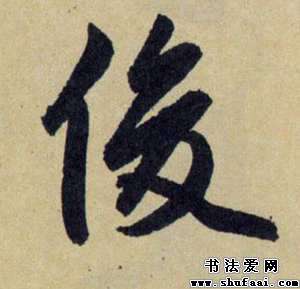 俊
书法爱网
www.shufaai.com